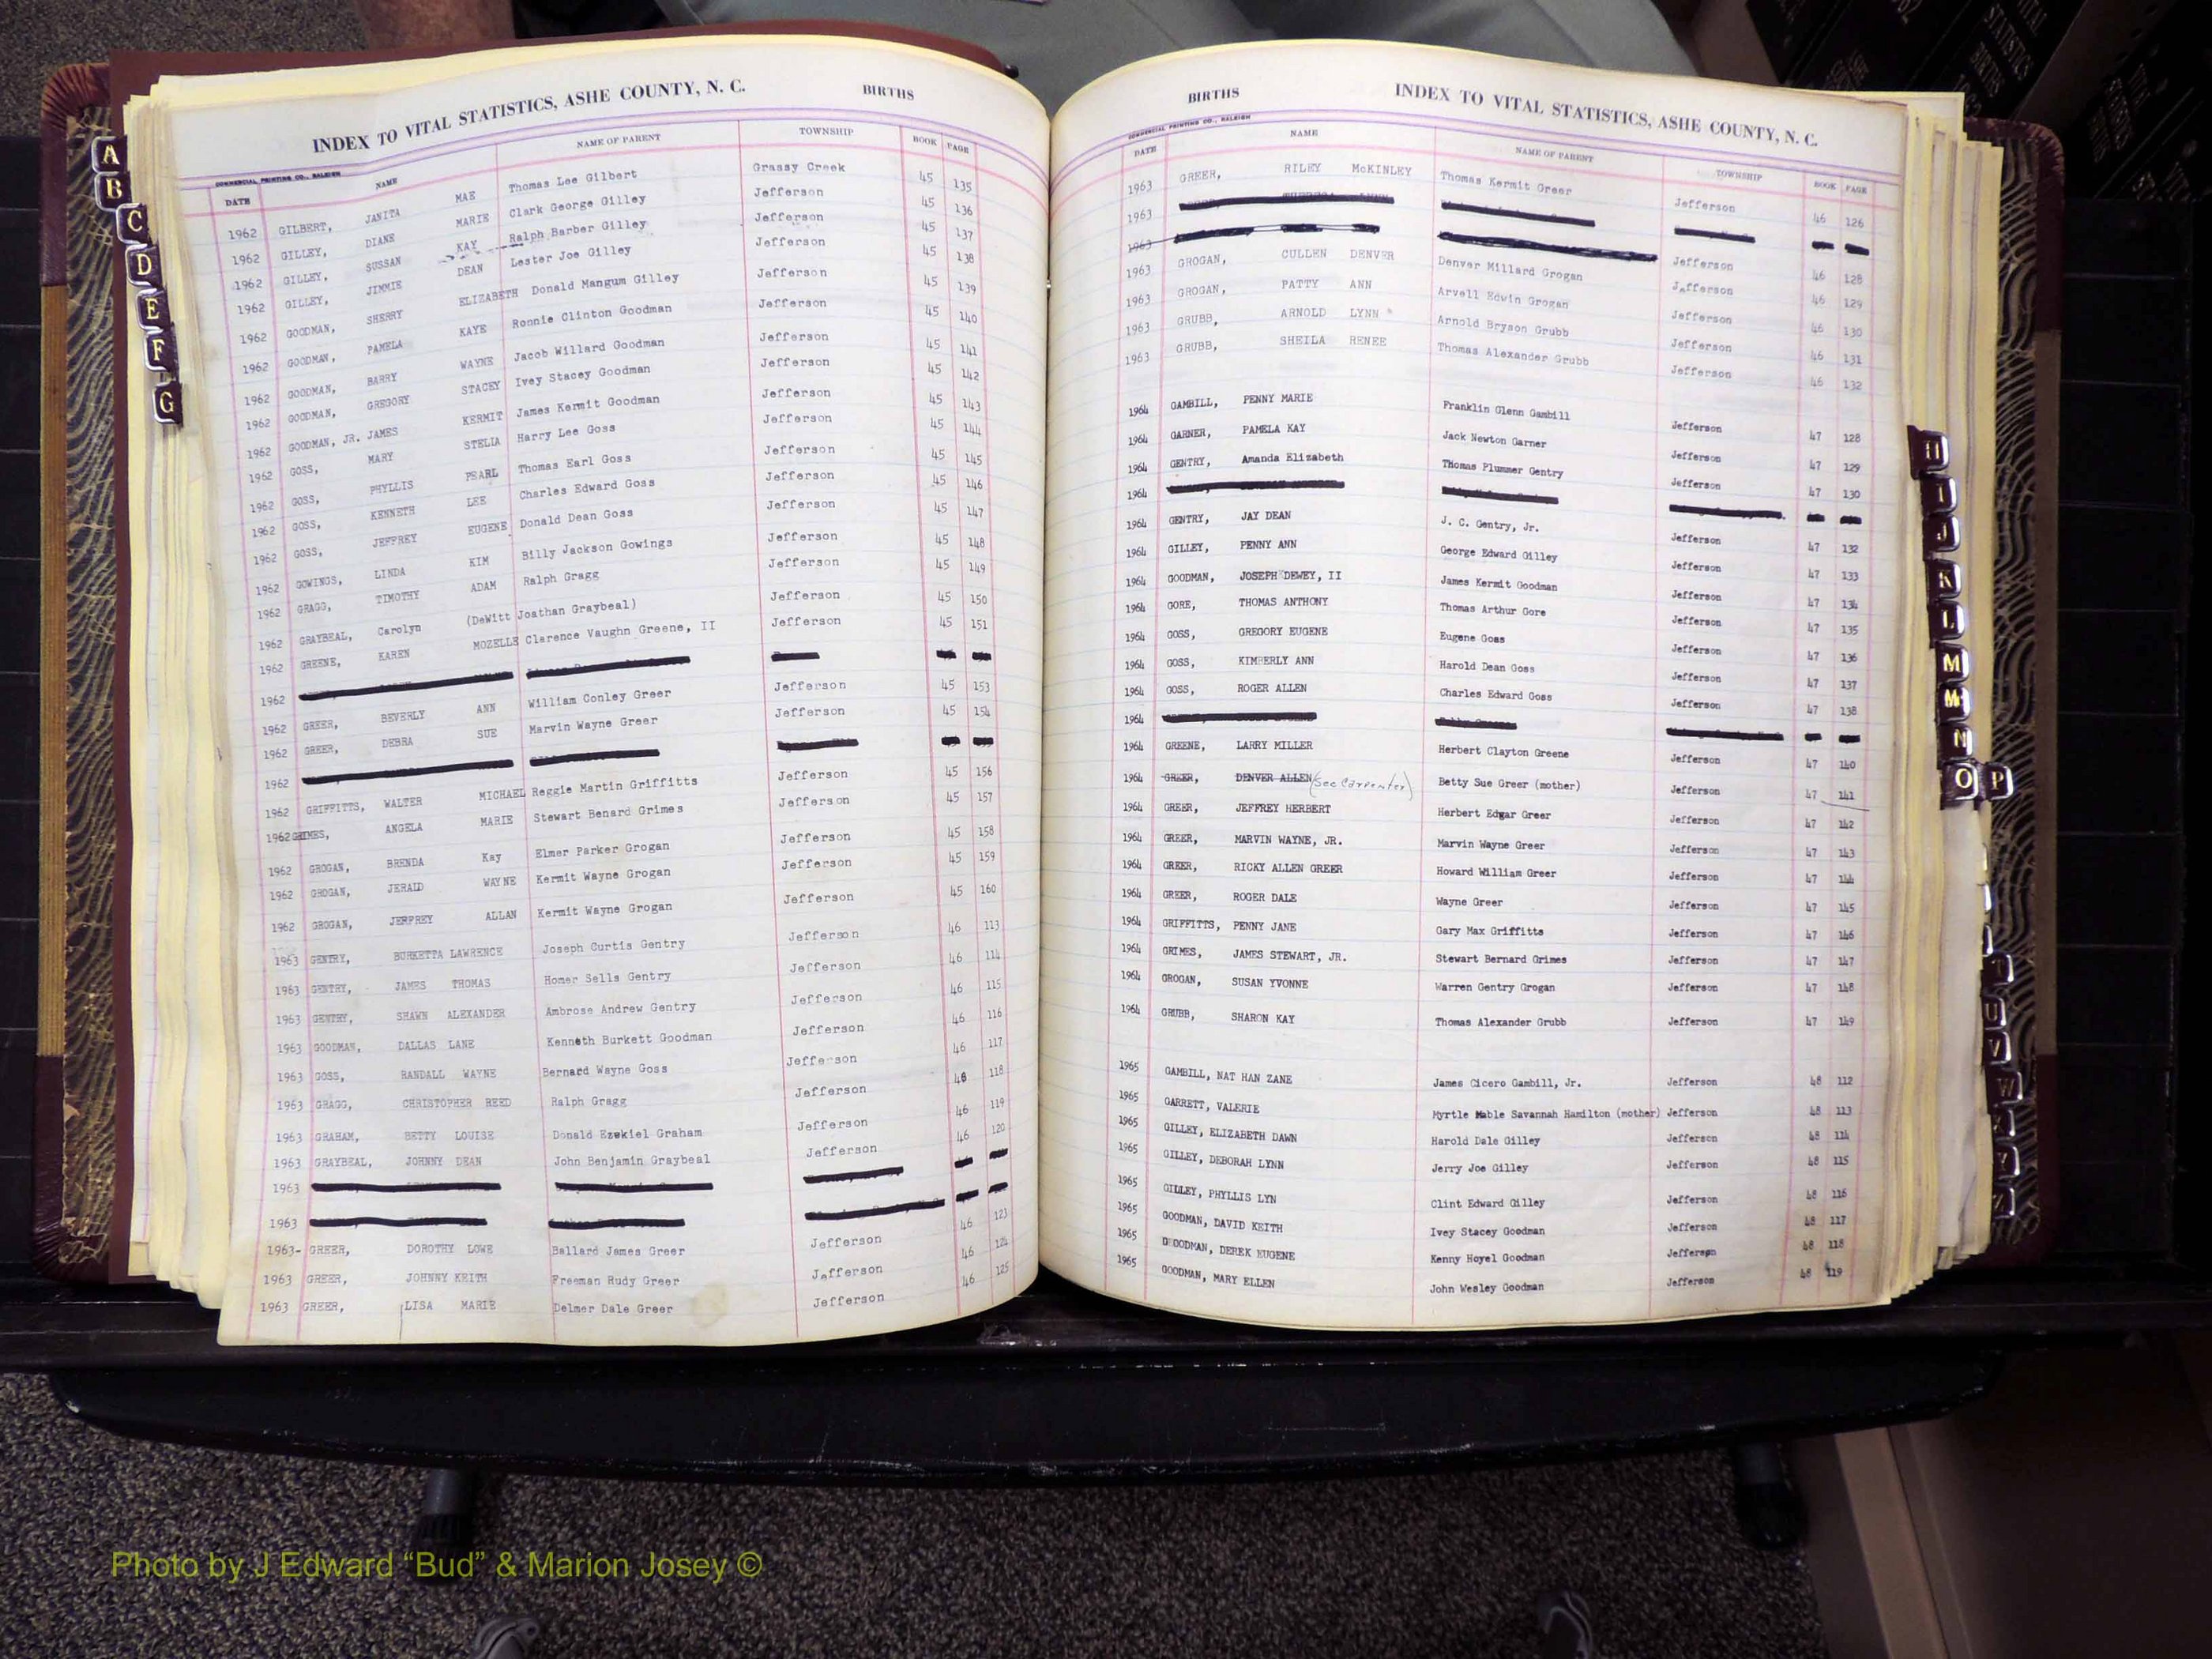 INDEX TO VITAL STATISTICS, ASHE COUNTY, N. C. BIRTHS
COMMERCIAL PRINTING CO., RALEIGH
DATE NAME NAME OF PARENT TOWNSHIP BOOK PAGE
1962 GILBERT, JANITA MAE Thomas Lee Gilbert Grassy Creek 45 135
1962 GILLEY, DIANE MARIE Clark George Gilley Jefferson 45 136
1962 GILLEY, SUSSAN KAY Ralph Barber Gilley Jefferson 45 137
1962 GILLEY, JIMMIE DEAN Lester Joe Gilley Jefferson 45 138
1962 GOODMAN, SHERRY ELIZABETH Donald Mangum Gilley Jefferson 45 139
1962 GOODMAN, PAMELA KAYE Ronnie Clinton Goodman Jefferson 45 140
1962 GOODMAN, BARRY WAYNE Jacob Willard Goodman Jefferson 45 141
1962 GOODMAN, GREGORY STACEY Ivey Stacey Goodman Jefferson 45 142
1962 GOODMAN, JR. JAMES KERMIT James Kermit Goodman Jefferson 45 143
1962 GOSS, MARY STELIA Harry Lee Goss Jefferson 45 144
1962 GOSS, PHYLLIS PEARL Thomas Earl Goss Jefferson 45 145
1962 GOSS, KENNETH LEE Charles Edward Goss Jefferson 45 146
1962 GOSS, JEFFREY EUGENE Donald Dean Goss Jefferson 45 147
1962 GOWINGS, LINDA KIM Billy Jackson Gowings Jefferson 45 148
1962 GRAGG, TIMOTHY ADAM Ralph Gragg Jefferson 45 149
1962 GRAYBEAL, Carolyn (DeWitt Joathan Graybeal) Jefferson 45 150
1962 GREENE, KAREN MOZELLE Clarence Vaughn Greene, II Jefferson 45 151
1962
1962 GREER, BEVERLY ANN William Conley Greer Jefferson 45 153
1962 GREER, DEBRA SUE Marvin Wayne Greer Jefferson 45 154
1962
1962 GRIFFITTS, WALTER MICHAEL Reggie Martin Griffitts Jefferson 45 156
1962 GRIMES, ANGELA MARIE Stewart Benard Grimes Jefferson 45 157
1962 GROGAN, BRENDA Kay Elmer Parker Grogan Jefferson 45 158
1962 GROGAN, JERALD WAYNE Kermit Wayne Grogan Jefferson 45 159
1962 GROGAN, JEFFREY ALLAN Kermit Wayne Grogan Jefferson 45 160
1963 GENTRY, BURKETTA LAWRENCE Joseph Curtis Gentry Jefferson 46 113
1963 GENTRY, JAMES THOMAS Homer Sells Gentry Jefferson 46 114
1963 GENTRY, SHAWN ALEXANDER Ambrose Andrew Gentry Jefferson 46 115
1963 GOODMAN, DALLAS LANE Kenneth Burkett Goodman Jefferson 46 116
1963 GOSS, RANDALL WAYNE Bernard Wayne Goss Jefferson 46 117
1963 GRAGG, CHRISTOPHER REED Ralph Gragg Jefferson 46 118
1963 GRAHAM, BETTY LOUISE Donald Ezekiel Graham Jefferson 46 119
1963 GRAYBEAL, JOHNNY DEAN John Benjamin Graybeal Jefferson 46 120
1963
1963
1963- GREER, DOROTHY LOWE Ballard James Greer Jefferson 46 123
1963 GREER, JOHNNY KEITH Freeman Rudy Greer Jefferson 46 124
1963 GREER, LISA MARIE Delmer Dale Greer Jefferson 46 125
BIRTHS INDEX TO VITAL STATISTICS, ASHE COUNTY, N. C.
COMMERCIAL PRINTING CO., RALEIGH
DATE NAME NAME OF PARENT TOWNSHIP BOOK PAGE
1963 GREER, RILEY McKINLEY Thomas Kermit Greer Jefferson 46 126
1963
1963
1963 GROGAN, CULLEN DENVER Denver Millard Grogan Jefferson 46 128
1963 GROGAN, PATTY ANN Arvell Edwin Grogan Jefferson 46 129
1963 GRUBB, ARNOLD LYNN Arnold Bryson Grubb Jefferson 46 130
1963 GRUBB, SHEILA RENEE Thomas Alexander Grubb Jefferson 46 131
Jefferson 46 132
1964 GAMBILL, PENNY MARIE Franklin Glenn Gambill Jefferson 47 128
1964 GARNER, PAMELA KAY Jack Newton Garner Jefferson 47 129
1964 GENTRY, Amanda Elizabeth Thomas Plummer Gentry Jefferson 47 130
1964
1964 GENTRY, JAY DEAN J. C. Gentry, Jr. Jefferson 47 132
1964 GILLEY, PENNY ANN George Edward Gilley Jefferson 47 133
1964 GOODMAN, JOSEPH DEWEY, II James Kermit Goodman Jefferson 47 134
1964 GORE, THOMAS ANTHONY Thomas Arthur Gore Jefferson 47 135
1964 GOSS, GREGORY EUGENE Eugene Goss Jefferson 47 136
1964 GOSS, KIMBERLY ANN Harold Dean Goss Jefferson 47 137
1964 GOSS, ROGER ALLEN Charles Edward Goss Jefferson 47 138
1964
1964 GREENE, LARRY MILLER Herbert Clayton Greene Jefferson 47 140
1964 GREER, DENVER ALLEN (see Carpenter) Betty Sue Greer (mother) Jefferson 47 141
1964 GREER, JEFFREY HERBERT Herbert Edgar Greer Jefferson 47 142
1964 GREER, MARVIN WAYNE, JR. Marvin Wayne Greer Jefferson 47 143
1964 GREER, RICKY ALLEN GREER Howard William Greer Jefferson 47 144
1964 GREER, ROGER DALE Wayne Greer Jefferson 47 145
1964 GRIFFITTS, PENNY JANE Gary Max Griffitts Jefferson 47 146
1964 GRIMES, JAMES STEWART, JR. Stewart Bernard Grimes Jefferson 47 147
1964 GROGAN, SUSAN YVONNE Warren Gentry Grogan Jefferson 47 148
1964 GRUBB, SHARON KAY Thomas Alexander Grubb Jefferson 47 149
1965 GAMBILL, NAT HAN ZANE James Cicero Gambill, Jr. Jefferson 48 112
1965 GARRETT, VALERIE Myrtle Mable Savannah Hamilton (mother) Jefferson 48 113
1965 GILLEY, ELIZABETH DAWN Harold Dale Gilley Jefferson 48 114
1965 GILLEY, DEBORAH LYNN Jerry Joe Gilley Jefferson 48 115
1965 GILLEY, PHYLLIS LYN Clint Edward Gilley Jefferson 48 116
1965 GOODMAN, DAVID KEITH Ivey Stacey Goodman Jefferson 48 117
1965 GOODMAN, DEREK EUGENE Kenny Hoyel Goodman Jefferson 48 118
1965 GOODMAN, MARY ELLEN John Wesley Goodman Jefferson 48 119
A
B
C
D
E
F
G
H
I
J
K
L
M
M
N
O P
T
U
V
W
Y
Photo by J Edward “Bud” & Marion Josey ©